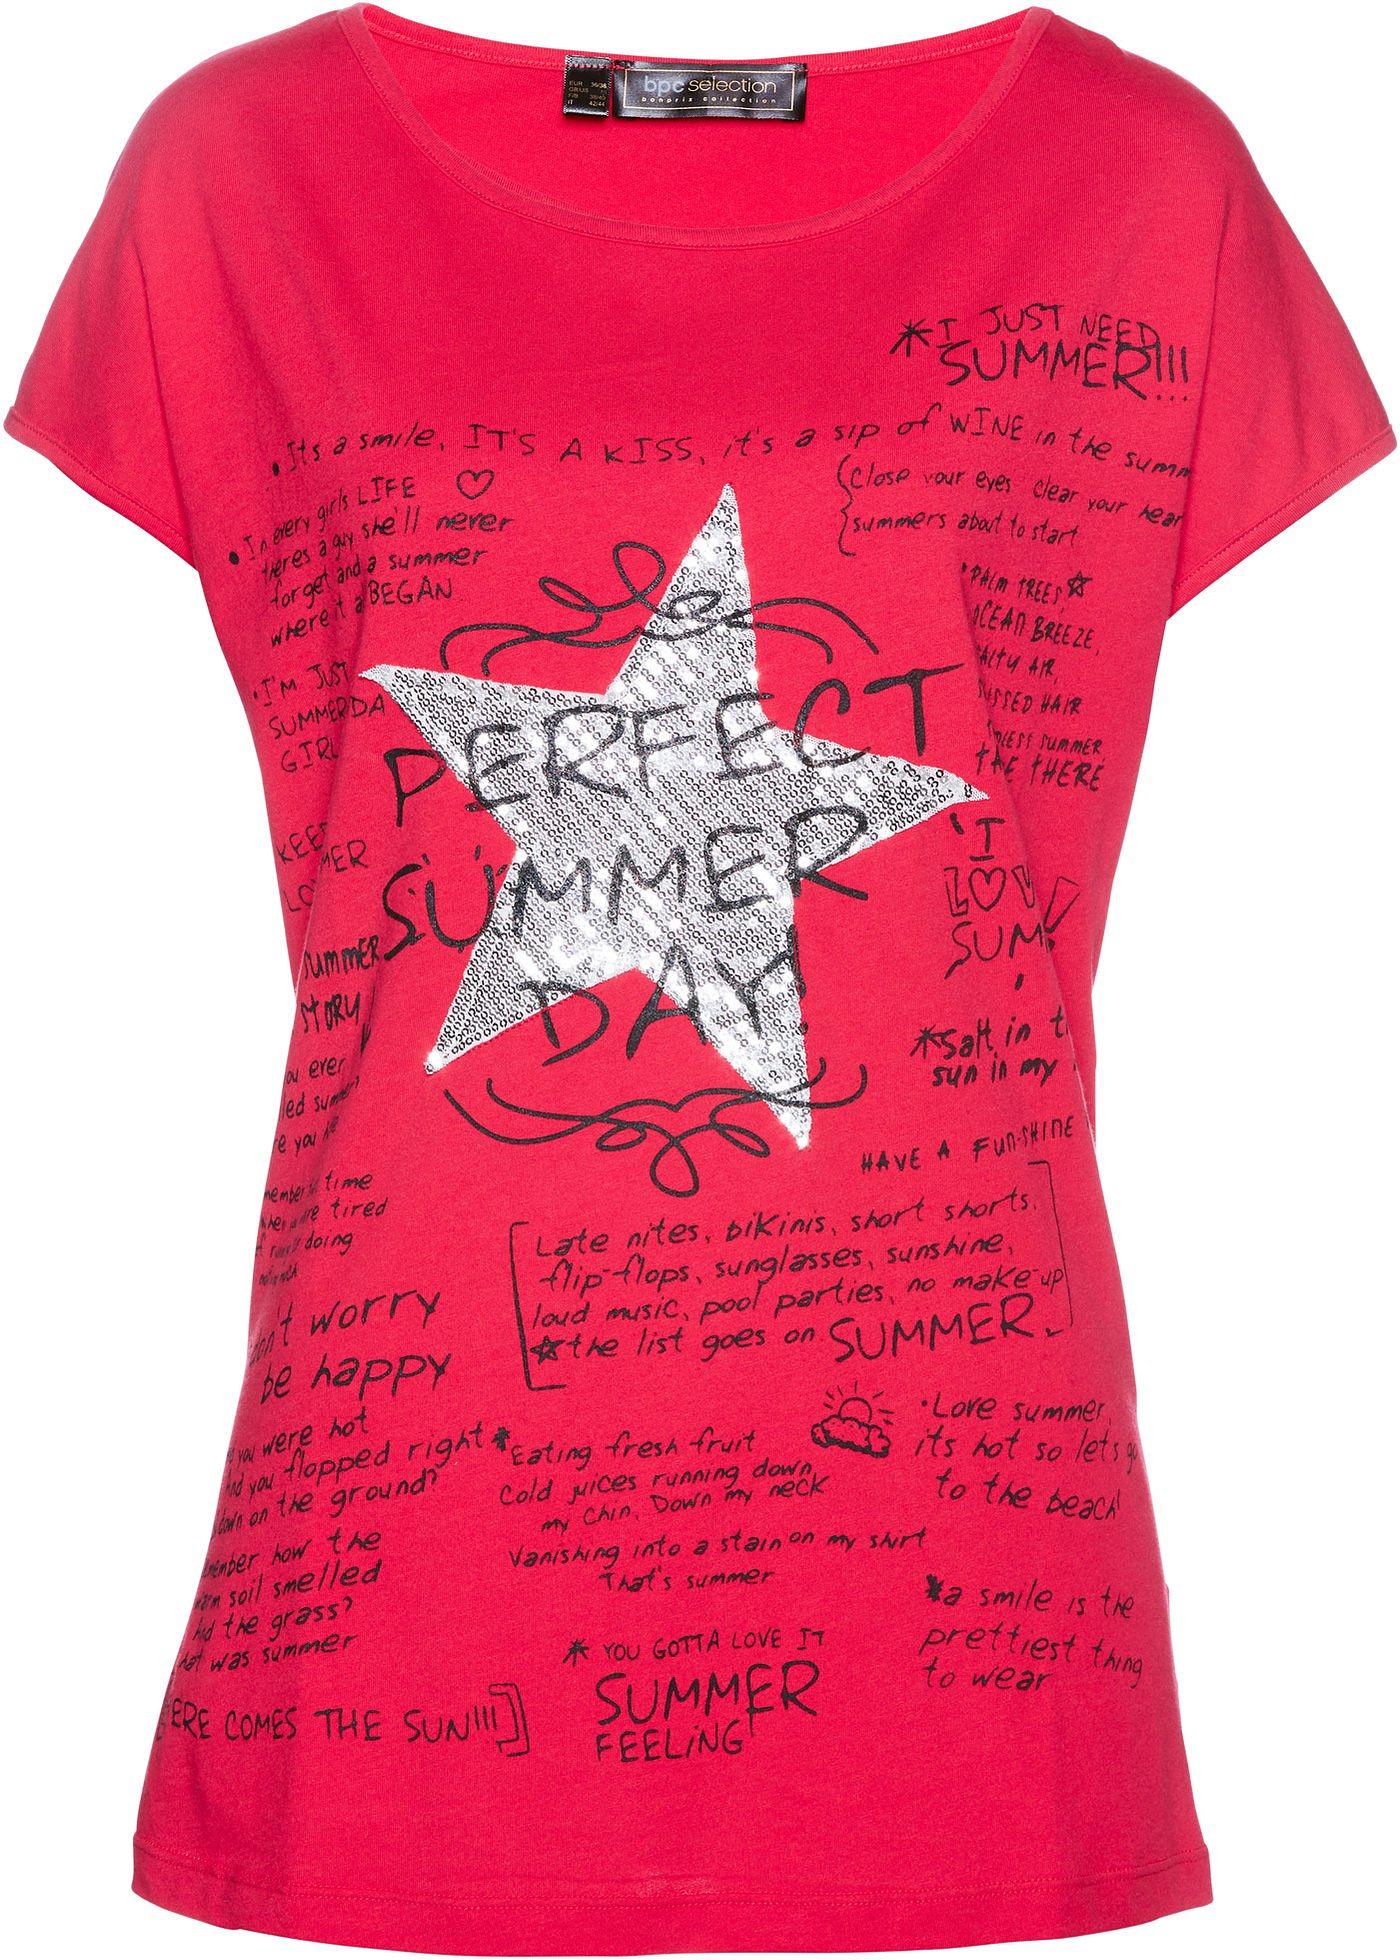 bpc selection
bonprix collection
EUR 36/38
42/44
I JUST NEED
SUMMER!!!...
Its a smile, IT'S A KISS, it's a sip of WINE in the summ
In every girls LIFE
theres a guy she'll never
forget and a summer
where it a BEGAN
Close your eyes clear your hear
summers about to start
PALM TREES,
OCEAN BREEZE,
ALTY AIR,
SSED HAIR
SUMMER
THERE
I'M JUST
SUMMERDA
GIRL
PERFECT
SUMMER
DAY!
SUMMER
STORY
I
LOV
SUM
ou ever
led
re you
*Salt in t
sun in my
HAVE A FUN-SHINE
member time
re tired
doing
Late nites, bikinis, short shorts,
flip-flops, sunglasses, sunshine,
loud music, pool parties, no make-up
the list goes on SUMMER
on't worry
be happy
you were hot
And you flopped right
down on the ground?
*Eating fresh fruit
Cold juices running down
my chin, Down my neck
Vanishing into a stain on my shirt
That's summer
Love summer,
its hot so let's go
to the beach
member how the
arm soil smelled
And the grass?
hat was summer
*a smile is the
prettiest thing
to wear
*YOU GOTTA LOVE IT
SUMMER
FEELING
ERE COMES THE SUN!!!]